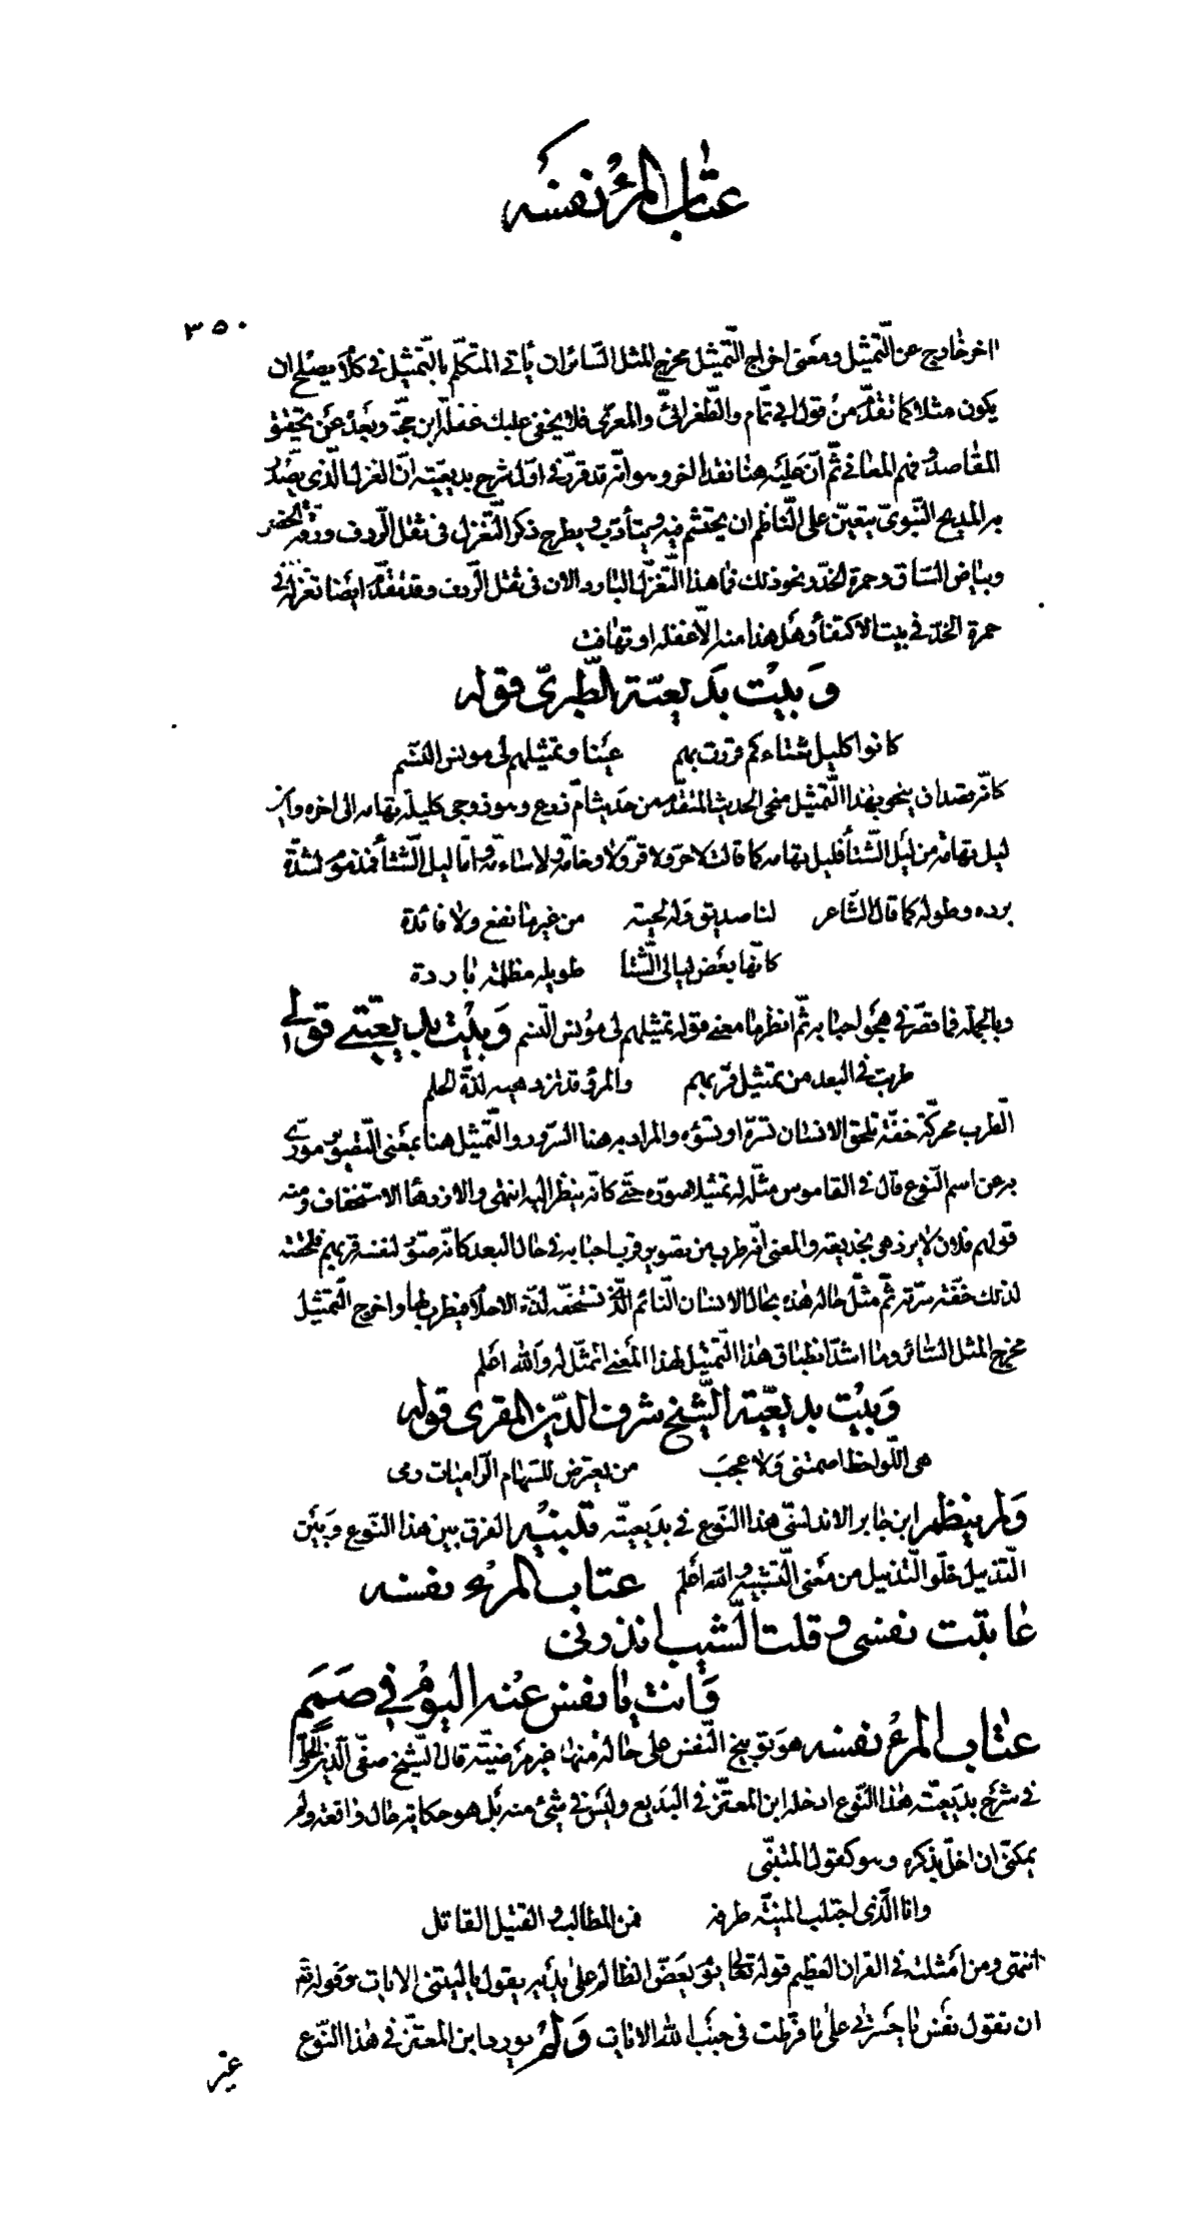 عتاب المرء نفسه
٣٥٠
اخر خارج عن التّمثيل ومعنى اخراج التّمثيل مخرج المثل السّائر ان يأتى المتكلّم بالتّمثيل فى كلام يصلح ان
يكون مثلا كما تقدّم من قول ابى تمّام والطّغرائىّ والمعرّى فلا يخفى عليك غفلة ابن حجّة وبعده عن تحقيق
المقاصد وفهم المعانى ثمّ انّ عليه هنا نقدا اخر وهو انّه قد قرّر فى اوّل شرح بديعيّته انّ الغزل الّذى يصدّر
به المديح النّبوىّ يتعيّن على النّاظم ان يحتشم فيه ويتأدّب ويطرح ذكر التّغزل فى ثقل الرّدف ورقّة الخصر
وبياض السّاق وحمرة الخدّ ونحو ذلك فما هذا التّغزّل البارد الان فى ثقل الرّدف وقد تقدّم ايضا تغزله فى
حمرة الخدّ فى بيت الاكتفأ وهل هذا منه الّا غفلة او تهافت
وَبيْت بَديعيّة الطّبرىّ قوله
كانوا كليل شتاء كم قررت بهم عَينا وتمثيلهم لى مونس النسّم
كانّه قصد ان ينحو بهذا التّمثيل منحى الحديث المتقدّم من حديث امّ زرع وهو زوجى كليل تهامه الى اخره واين
ليل تهامة من ليَل الشّتأ فليل تهامه كما قالت لا حرّ ولا قرّ ولا وخامة ولا سئامة وامّا ليل الشّتأ فمذموم لشدّة
برده وطوله كما قال الشّاعر لنا صديق وله لحية من غير ما نفع ولا فائدة
كانّها بعَض ليالى الشّتا طويلة مظلمة باردة
وبالجملة فما قصّر فى هجو احبابه ثمّ انظر ما معنى قوله تمثيلهم لى مؤنس النّسم وَبيْت بديعيّتى قولى
طربت فى البعد من تمثيل قربهم والمرؤ قد تزدهيه لذّة الحلم
الطّرب محرّكة خفّة تلحق الانسان تسرّه او تسؤه والمراد به هنا السّرور والتّمثيل هنا بمعَنى التّصوير مورّى
به عن اسم النّوع قال فى القاموس مثّله له تمثيلا صوّره حتّى كانّه ينظر اليه انتهى والازدها الاستخفاف ومنه
قولهم فلان لا يزدهى بخديعة والمعنى انّه طرب من تصوير قرب احبابه فى حال البعد كانّه صوّر لنفسه قربهم فلحقته
لذلك خفّة سرّته ثمّ مثّل حاله هذه بحال الانسان النّائم الّذى تستخفّه لذّة الاحلام فيطرب لها واخرج التّمثيل
مخرج المثل السّائر وما اشدّ انطباق هذا التّمثيل لهذا المعَنى المتمثّل له وَاللّه اعَلم
وَبيْت بديعيّة الشّيخ شرف الدّين المقرى قوله
هى اللّواحظ اصمتنى ولا عجبَ من يعترض للسّهام الرّاميات رمى
وَلم ينظم ابن جابر الاندلسىّ هذا النّوع فى بديَعيّته تنبيه الفرق بين هذا النّوع وَبيَن
التّذييل خلوّ التّذييل من معَنى التّشبيه واللّه اعَلم عتاب المرء نفسه
عاتبت نفسى وقلت الشّيب انذرنى
وَانت يا نفس عنه اليوم فى صَمَم
عتاب المرء نفسه هوَ توبيخ النّفس على حالة منها غير مرَضيّة قال الشّيخ صفىّ الدّين الحلّى
فى شرح بديَعيّته هذا النّوع ادخله ابن المعتزّ فى البديع وليَس فى شئ منه بَل هو حكاية حال واقعة ولم
يمكنّى ان اخلّ بذكره وهو كقول المتنبّى
وانا الّذى اجتلب المنيّة طرفه فمن المطالب والقتيل القاتل
انتهى ومن امَثلته فى القران العظيم قوله تعالى يوم يعَضّ الظالم على يديَه يقول يا ليتنى الايات وقوله تعالى
ان تقول نفَس يا حسَرتى على ما فرّطت فى جنب اللّه الايات وَلم يورد ابن المعتزّ فى هذا النّوع
غير